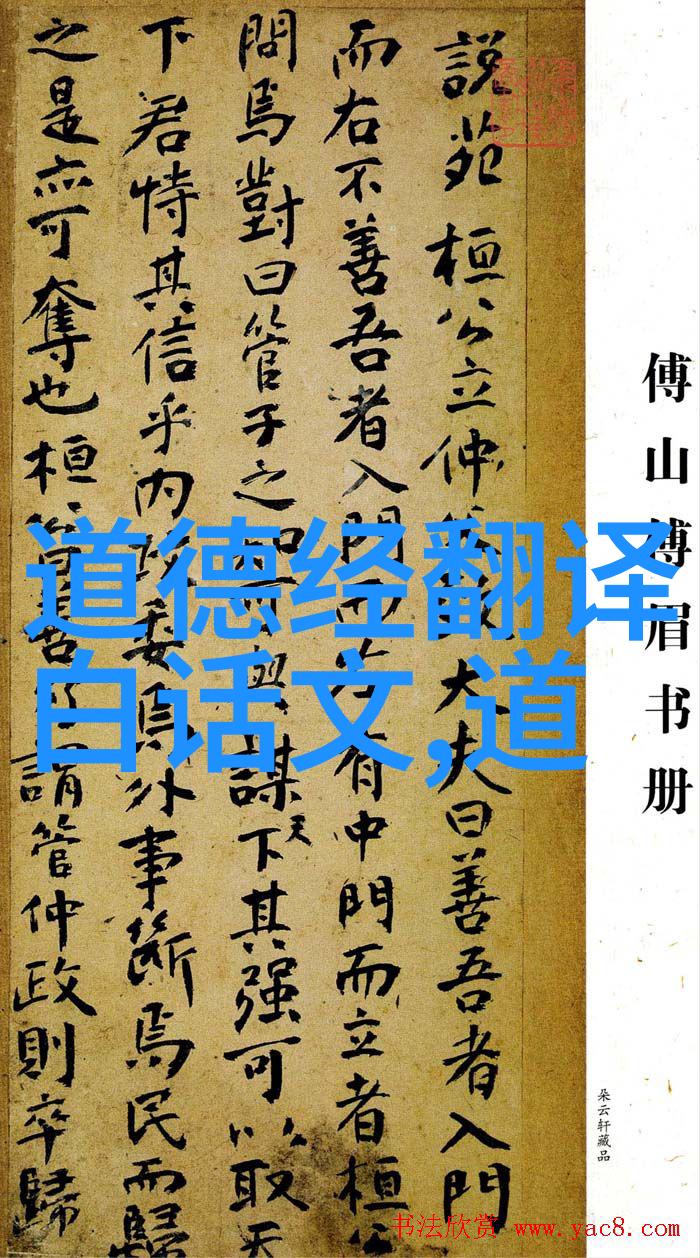 傅山傅眉书册
朵云轩藏品
說苑 桓公立仲父致大夫曰善吾者入門
而右不善吾者入門而左有中門而立者桓公
問焉對曰管子之知可與謀天下其强可以取天
下君恃其信乎內政委焉外事斷焉民而歸
之是亦可奪也桓公曰善乃謂管仲政則卒歸
道德经翻译
白话文,道
书法欣赏 www.yac8.com